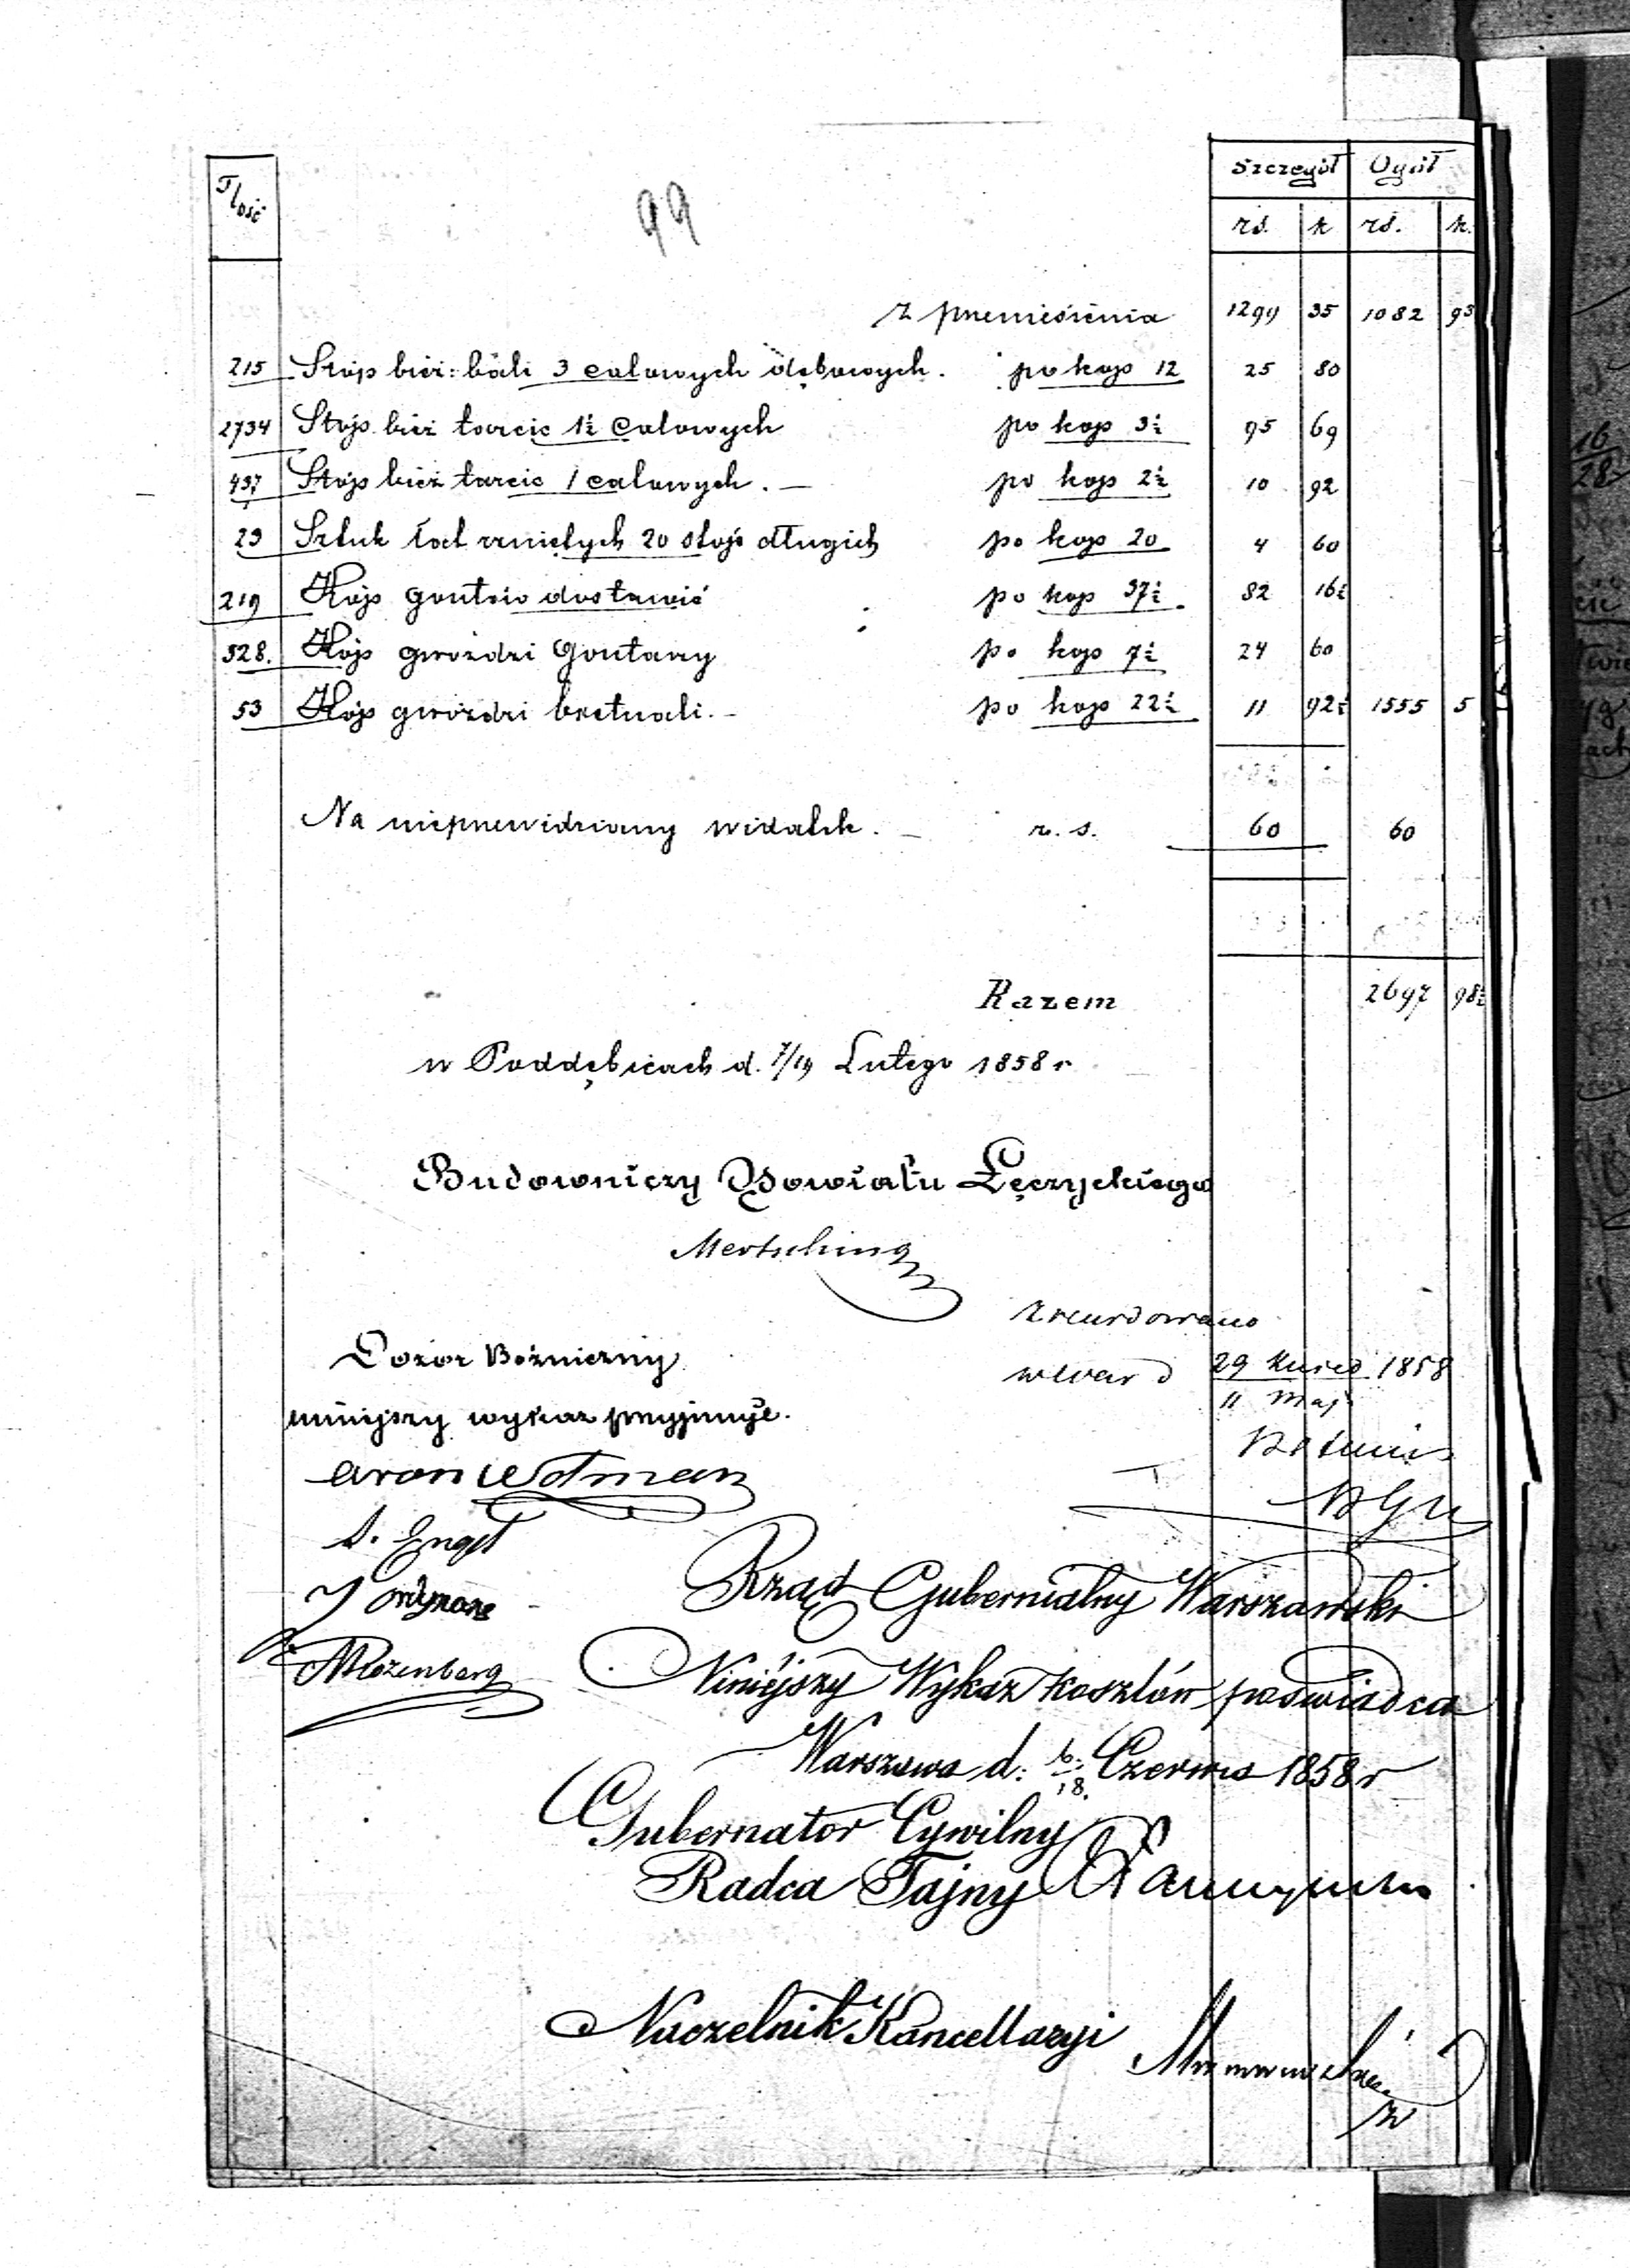 99
Ilość Szczegół Ogół
rs. k rs. k.
z pneniesienia 1299 35 1082 93
215 Stóp bież: bali 3 calowych dębowych. po kop 12 25 80
2734 Stóp bież tarcic 1½ calowych po kop 3½ 95 69
437 Stóp bież tarcic 1 calowych. — po kop 2½ 10 92
23 Sztuk łat rzniętych 20 stóp długich po kop 20 4 60
219 Kóp gontów dostawić po kop 37½ 82 16½
328. Kóp gwoździ Gontowy po kop 7½ 24 60
53 Kóp gwoździ bretnali. — po kop 22½ 11 92½ 1555 5
Na nieprzewidziany widatek. — r. s. 60 60
Razem 2697 98½
w Poddębicach d. 7/19 Lutego 1858 r
Budowniczy Powiatu Łęczyckiego
Mertsching
Zrewidowano
Dozor Bóżniczny
29 1858
11 Maj
niniejszy wykaz przyjmuje.
Aron
S. Engel
MRozenberg
Rząd Gubernialny Warszawski
Niniéjszy Wykaz kosztów poswiadcza
Warszawa d: 6./18. Czerwca 1858 r
Gubernator Cywilny
Radca Tajny
Naczelnik Kancellaryi